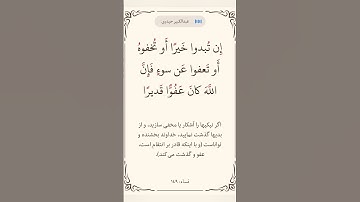 عبدالکبیر حیدری
إِن تُبدوا خَيرًا أَو تُخفوهُ
أَو تَعفوا عَن سوءٍ فَإِنَّ
اللَّهَ كانَ عَفُوًّا قَديرًا
اگر نیکیها را آشکار یا مخفی سازید، و از
بدیها گذشت نمایید، خداوند بخشنده و
تواناست (و با اینکه قادر بر انتقام است،
عفو و گذشت می‌کند).
نساء: ۱۴۹